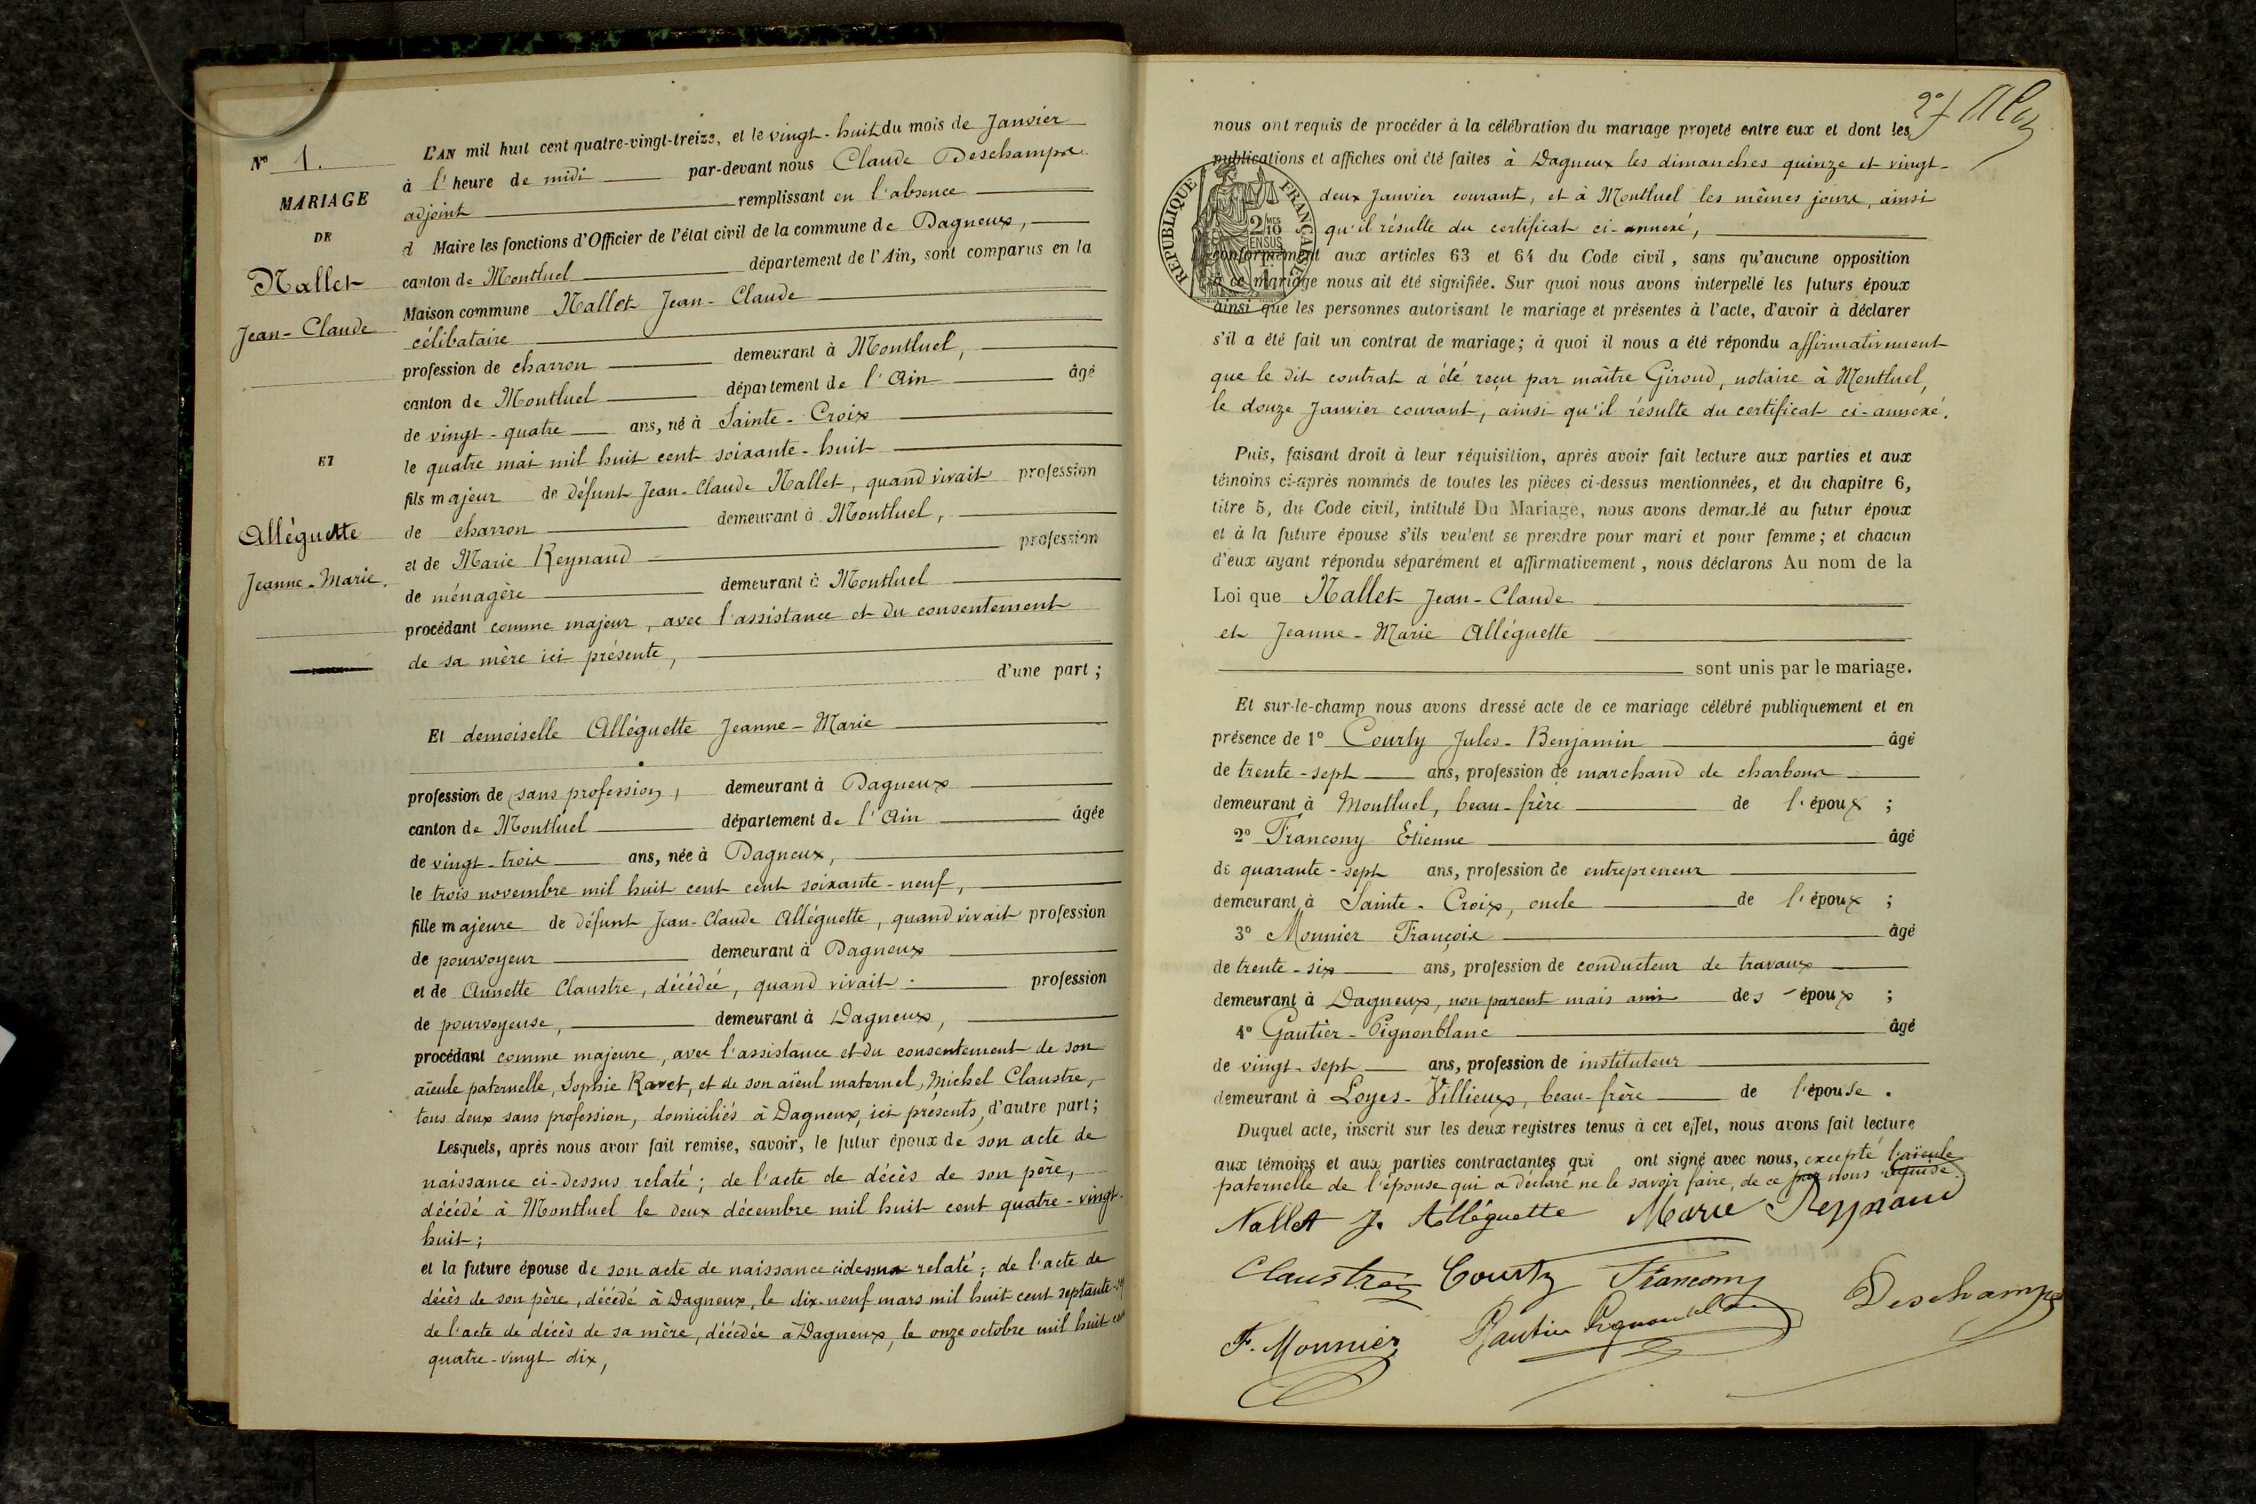 N° 1.
MARIAGE
DE
Nallet
Jean-Claude
ET
Alléguette
Jeanne-Marie.
L'AN mil huit cent quatre-vingt-treize, et le vingt-huit du mois de Janvier
à l'heure de midi par-devant nous Claude Deschamps
adjoint remplissant en l'absence
d Maire les fonctions d'Officier de l'état civil de la commune de Dagneux,
canton de Montluel département de l'Ain, sont comparus en la
Maison commune Nallet Jean-Claude
célibataire
profession de charron demeurant à Montluel,
canton de Montluel département de l'Ain âgé
de vingt-quatre ans, né à Sainte-Croix
le quatre mai mil huit cent soixante-huit
fils majeur de défunt Jean-Claude Nallet, quand vivait profession
de charron demeurant à Montluel,
et de Marie Reynaud profession
de ménagère demeurant à Montluel
procédant comme majeur, avec l'assistance et du consentement
de sa mère ici présente,
d'une part;
Et demoiselle Alléguette Jeanne-Marie
profession de sans profession, demeurant à Dagneux
canton de Montluel département de l'Ain âgée
de vingt-trois ans, née à Dagneux,
le trois novembre mil huit cent cent soixante-neuf,
fille majeure de défunt Jean-Claude Alléguette, quand vivait profession
de pourvoyeur demeurant à Dagneux
et de Annette Claustre, décédée, quand vivait profession
de pourvoyeuse, demeurant à Dagneux,
procédant comme majeure, avec l'assistance et du consentement de son
aïeule paternelle, Sophie Ravet, et de son aïeul maternel, Michel Claustre,
tous deux sans profession, domiciliés à Dagneux, ici présents, d'autre part;
Lesquels, après nous avoir fait remise, savoir, le futur époux de son acte de
naissance ci-dessus relaté; de l'acte de décès de son père,
décédé à Montluel le deux décembre mil huit cent quatre-vingt-
huit;
et la future épouse de son acte de naissance cidessus relaté; de l'acte de
décès de son père, décédé à Dagneux, le dix-neuf mars mil huit cent septante
de l'acte de décès de sa mère, décédée à Dagneux, le onze octobre mil huit cent
quatre-vingt dix,
nous ont requis de procéder à la célébration du mariage projeté entre eux et dont les
publications et affiches ont été faites à Dagneux les dimanches quinze et vingt-
deux Janvier courant, et à Montluel les mêmes jours, ainsi
qu'il résulte du certificat ci-annexé,
RÉPUBLIQUE FRANÇAISE
2/10 EN SUS
conformément aux articles 63 et 64 du Code civil, sans qu'aucune opposition
à ce mariage nous ait été signifiée. Sur quoi nous avons interpellé les futurs époux
ainsi que les personnes autorisant le mariage et présentes à l'acte, d'avoir à déclarer
s'il a été fait un contrat de mariage; à quoi il nous a été répondu affirmativement
que le dit contrat a été reçu par maître Giroud, notaire à Montluel,
le douze Janvier courant, ainsi qu'il résulte du certificat ci-annexé.
Puis, faisant droit à leur réquisition, après avoir fait lecture aux parties et aux
témoins ci-après nommés de toutes les pièces ci-dessus mentionnées, et du chapitre 6,
titre 5, du Code civil, intitulé Du Mariage, nous avons demandé au futur époux
et à la future épouse s'ils veulent se prendre pour mari et pour femme; et chacun
d'eux ayant répondu séparément et affirmativement, nous déclarons Au nom de la
Loi que Nallet Jean-Claude
et Jeanne-Marie Alléguette
sont unis par le mariage.
Et sur-le-champ nous avons dressé acte de ce mariage célébré publiquement et en
présence de 1° Courty Jules-Benjamin âgé
de trente-sept ans, profession de marchand de charbons
demeurant à Montluel, beau-frère de l'époux;
2° Francony Etienne âgé
de quarante-sept ans, profession de entrepreneur
demeurant à Sainte-Croix, oncle de l'époux;
3° Monnier François âgé
de trente-six ans, profession de conducteur de travaux
demeurant à Dagneux, non parent mais ami des époux;
4° Gautier-Pignonblanc âgé
de vingt-sept ans, profession de instituteur
demeurant à Loyes-Villieux, beau-frère de l'épouse.
Duquel acte, inscrit sur les deux registres tenus à cet effet, nous avons fait lecture
aux témoins et aux parties contractantes qui ont signé avec nous, excepté l'aïeule
paternelle de l'épouse qui a déclaré ne le savoir faire, de ce par nous requise.
Nallet J. Alléguette Marie Reynaud
Claustre Courty Francony
F. Monnier Gautier Pignonblanc Deschamps